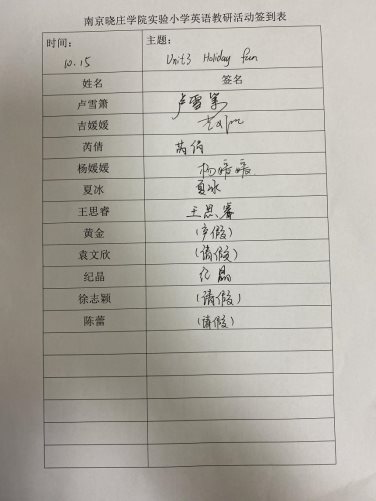 南京晓庄学院实验小学英语教研活动签到表
时间： 主题：
10.15 Unit3 Holiday fun
姓名 签名
卢雪箫 卢雪箫
吉媛媛
芮倩 芮倩
杨媛媛 杨媛媛
夏冰 夏冰
王思睿 王思睿
黄金 （产假）
袁文欣 （请假）
纪晶 纪晶
徐志颖 （请假）
陈蕾 （请假）